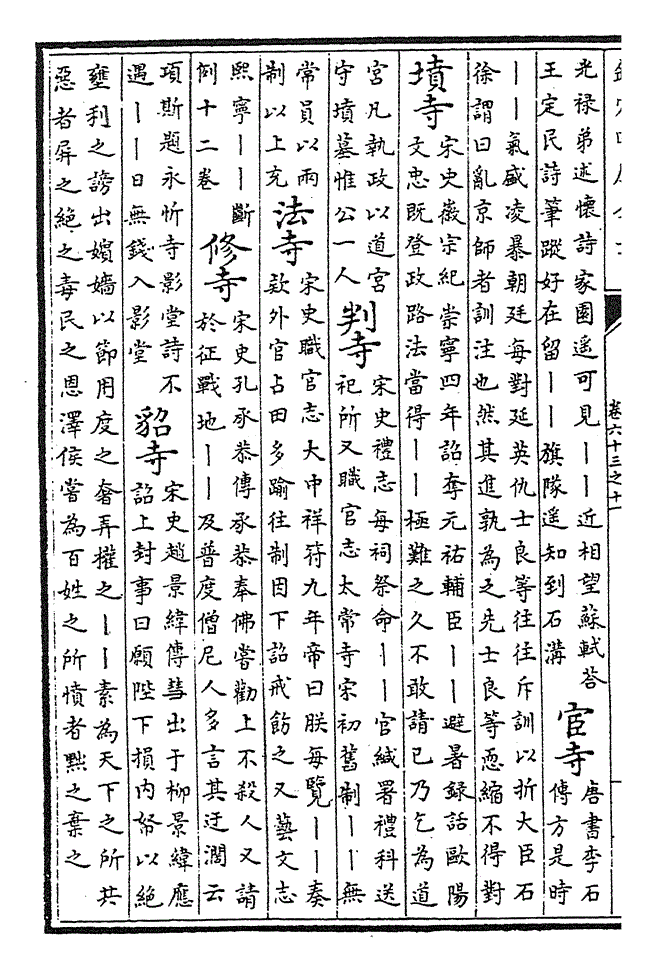 卷六十三之十一
光禄弟述懷詩家園遥可見丨丨近相望蘇軾荅
王定民詩筆蹤好在留丨丨旗隊遥知到石溝
宦寺
唐書李石
傳方是時
丨丨氣盛凌暴朝廷每對延英仇士良等往往斥訓以折大臣石
徐謂曰亂京師者訓注也然其進孰為之先士良等恧縮不得對
墳寺
宋史徽宗紀崇寧四年詔奪元祐輔臣丨丨避暑録話歐陽
文忠既登政路法當得丨丨極難之久不敢請已乃乞為道
宫凡執政以道宫
守墳墓惟公一人
判寺
宋史禮志每祠祭命丨丨官緘署禮科送
祀所又職官志太常寺宋初舊制丨丨無
常員以兩
制以上充
法寺
宋史職官志大中祥符九年帝曰朕每覽丨丨奏
款外官占田多踰往制因下詔戒飭之又藝文志
熙寧丨丨斷
例十二卷
修寺
宋史孔承恭傳承恭奉佛嘗勸上不殺人又請
於征戰地丨丨及普度僧尼人多言其迂濶云
項斯題永忻寺影堂詩不
遇丨丨日無錢入影堂
貂寺
宋史趙景緯傳彗出于柳景緯應
詔上封事曰願陛下損内帑以絶
壅利之謗出嬪嬙以節用度之奢弄權之丨丨素為天下之所共
惡者屏之絶之毒民之恩澤侯嘗為百姓之所憤者黜之棄之